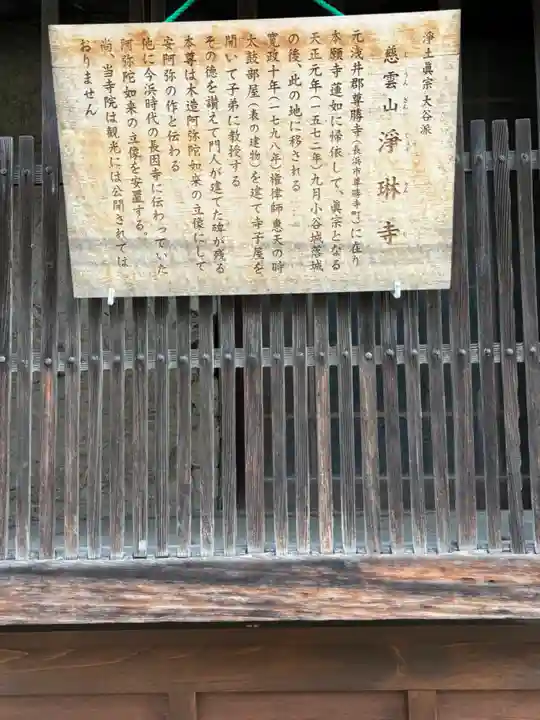 浄土眞宗 大谷派
慈雲山 淨琳寺
元浅井郡尊勝寺(長浜市尊勝寺町)に在り
本願寺蓮如に帰依して、眞宗となる
天正元年(一五七二年)九月小谷城落城
の後、此の地に移される
寛政十年(一七九八年)権律師恵天の時
太鼓部屋(表の建物)を建て寺子屋を
開いて子弟に教授する
その徳を讃えて門人が建てた碑が残る
本尊は木造阿弥陀如来の立像にして
安阿弥の作と伝わる
他に今浜時代の長因寺に伝わっていた
阿弥陀如来の立像を安置する。
尚、当寺院は観光には公開されては
おりません